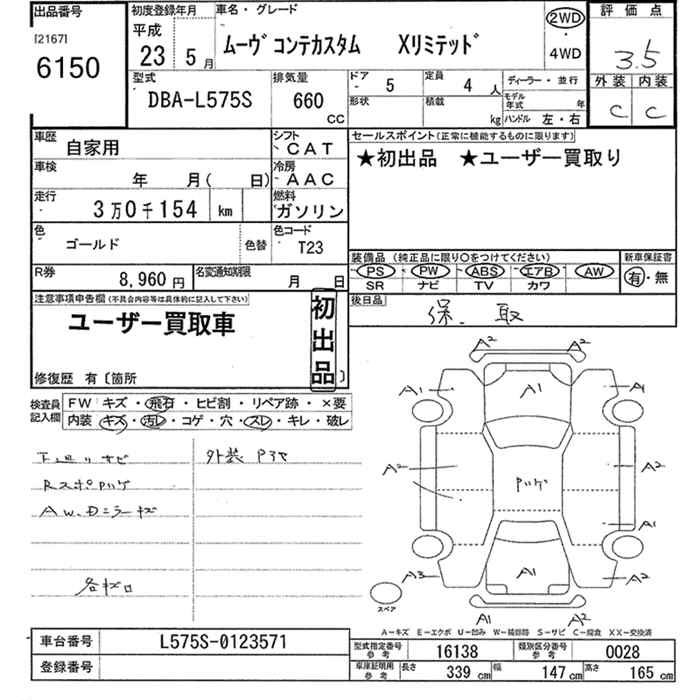 出品番号 初度登録年月 車名・グレード 評価点
[2167] 6150 平成 23 5月 ムーヴ コンテカスタム Xリミテッド 2WD・4WD 3.5
型式 DBA-L575S 排気量 660 CC ドア - 5 定員 4人 ディーラー・並行 外装 内装
形状 積載 kg モデル年式 年 ハンドル 左・右 C C
車歴 自家用 シフト CAT セールスポイント(正常に機能するものに限ります)
車検 年 月( 日) 冷房 AAC ★初出品 ★ユーザー買取り
走行 3万0千154 km 燃料 ガソリン
色 ゴールド 色替 色コード T23
R券 8,960円 名変通知期限 月 日 装備品 (純正品に限り○をつけてください) 新車保証書
PS PW ABS エアB AW 有・無
SR ナビ TV カワ
注意事項申告欄(不具合内容等は具体的に記入して下さい) 後日品 保、取
ユーザー買取車 初出品
修復歴 有〔箇所 〕
検査員記入欄 FW キズ・飛石・ヒビ割・リペア跡・×要
内装 キズ・汚レ・コゲ・穴・スレ・キレ・破レ
下廻りサビ 外装
AW、Dミラーキズ
各キズ
A2 A2
A1 A1 A1
A2 ハゲ A2
A1
A3 A1 A2
スペア A1 A2
A-キズ E-エクボ U-凹み W-補修跡 S-サビ C-腐食 XX-交換済
車台番号 L575S-0123571 型式指定番号 参考 16138 類別区分番号 参考 0028
登録番号 車庫証明用 参考 長さ 339 cm 幅 147 cm 高さ 165 cm